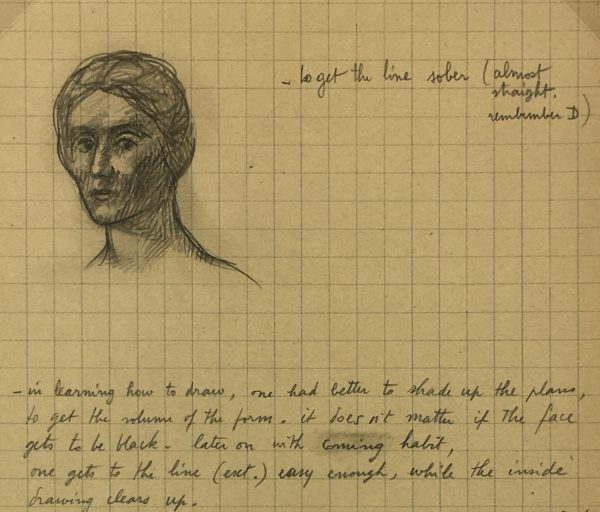 - to get the line sober (almost
straight.
remember D)
- in learning how to draw, one had better to shade up the plans,
to get the volume of the form. it does n't matter if the face
gets to be black - later on with coming habit,
one gets to the line (ext.) easy enough, while the inside
drawing clears up.